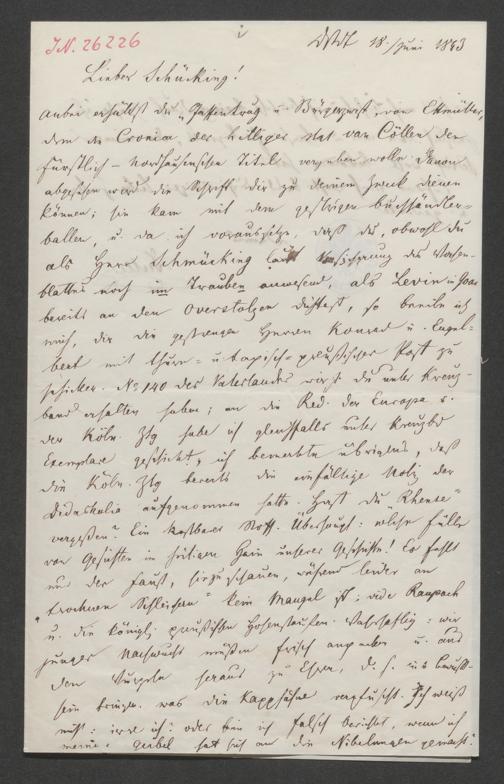 J.N. 26226
Dstdt 18. Juni 1843
Lieber Schücking!
Anbei erhältst du "Pfaffentrug u. Bürgerzwist" von Ettmüller,
dem die Cronica der hilliger Stat van Cöllen den
fürstlich-nordhausenschen Titel vergeben wolle. Davon
abgesehen wird die Schrift dir zu deinem Zweck dienen
können; sie kam mit dem gestrigen Buchhändler-
ballen, u. da ich voraussetze, daß du, obwohl du
als Herr Schmücking laut Versicherung des Wochen-
blattes noch im Trauben anwesend, als Levin in
bereits an den Overstolzen dichtest, so beeile ich
mich, dir die gestrengen Herren Konrad u. Engel-
bert mit thurn- u. taxisch-preußischer Post zu
schicken. No 140 des Vaterlandes wirst du unter Kreuz-
band erhalten haben; an die Red. der Europa u.
der Köln. Ztg habe ich gleichfalls unter Kreuzbd
Exemplare geschickt, ich bemerkte übrigens, daß
die Köln. Ztg bereits die einfältige Notiz der
Didaskalia aufgenommen hatte. Hast du "Rhense"
vergessen? Ein kostbarer Stoff. Überhaupt: welche Fülle
von Gedichten im heiligen Hain unserer Geschichte! Es fehlt
nur der Faust, hinzuschauen, während leider an
"trocknen Schleichern" kein Mangel ist; vide Raupach
u. die königl. preußischen Hohenstaufen. Wahrhaftig: wir
junger Nachwuchs müßen frisch angreifen u. aus
den Wurzeln heraus zu Ehren, d. h. ins Bewußt-
sein bringen, was die Kapphähne verpfuscht. Ich weiß
nicht: irre ich oder bin ich falsch berichtet, wenn ich
meine, Geibel hat sich an die Nibelungen gemacht?